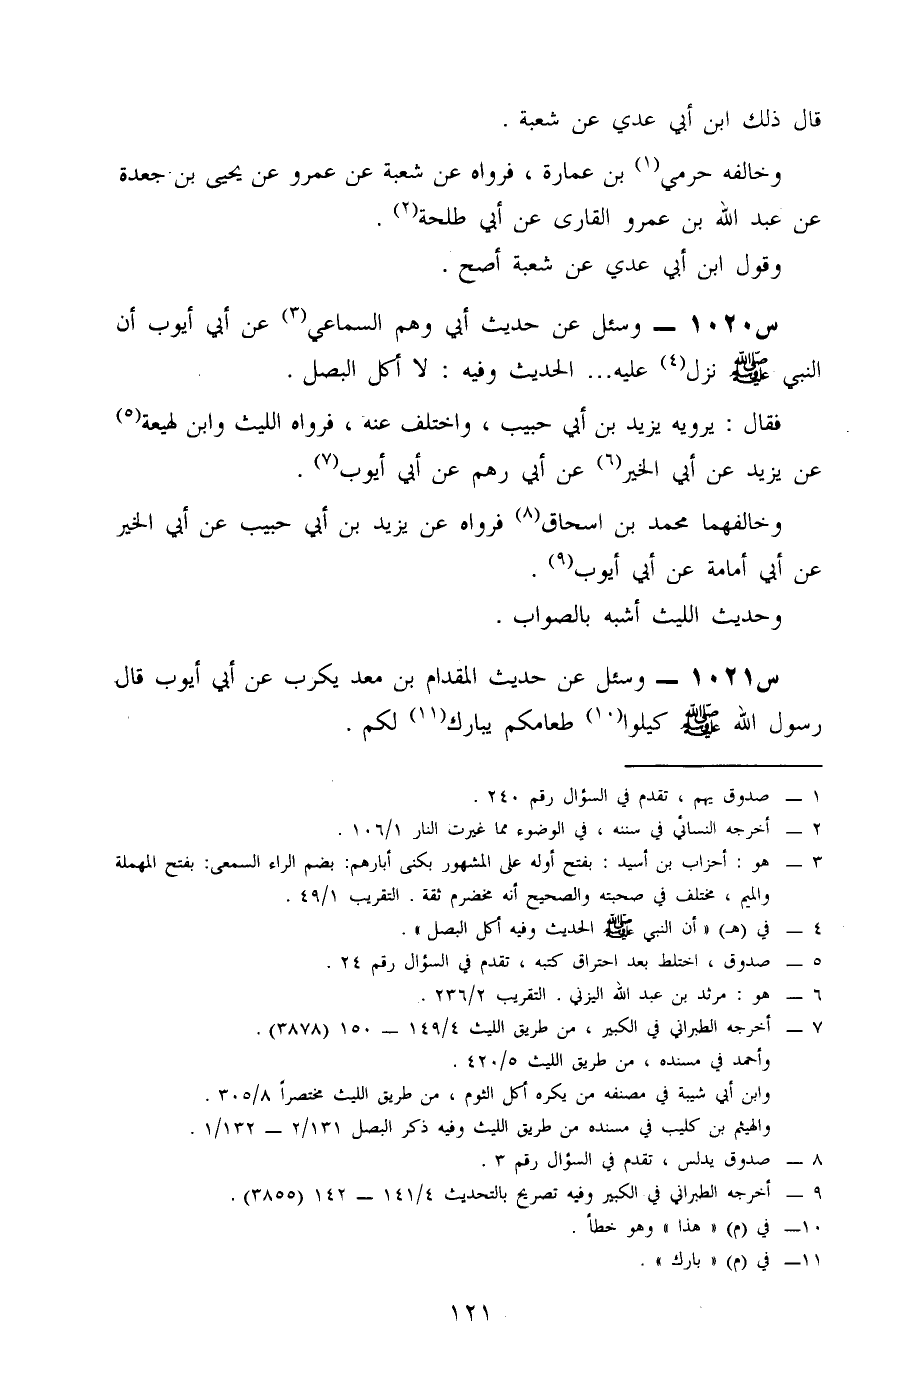 قال ذلك ابن أبي عدي عن شعبة .
وخالفه حرمي(١) بن عمارة ، فرواه عن شعبة عن عمرو عن يحيى بن جعدة
عن عبد الله بن عمرو القارى عن أبي طلحة(٢) .
وقول ابن أبي عدي عن شعبة أصح .
س١٠٢٠ ــ وسئل عن حديث أبي وهم السماعي(٣) عن أبي أيوب أن
النبي ﷺ نزل(٤) عليه... الحديث وفيه : لا أكل البصل .
فقال : يرويه يزيد بن أبي حبيب ، واختلف عنه ، فرواه الليث وابن لهيعة(٥)
عن يزيد عن أبي الخير(٦) عن أبي رهم عن أبي أيوب(٧) .
وخالفهما محمد بن اسحاق(٨) فرواه عن يزيد بن أبي حبيب عن أبي الخير
عن أبي أمامة عن أبي أيوب(٩) .
وحديث الليث أشبه بالصواب .
س١٠٢١ ــ وسئل عن حديث المقدام بن معد يكرب عن أبي أيوب قال
رسول الله ﷺ كيلوا(١٠) طعامكم يبارك(١١) لكم .
١ ــ صدوق يهم ، تقدم في السؤال رقم ٢٤٠ .
٢ ــ أخرجه النسائي في سننه ، في الوضوء مما غيرت النار ١٠٦/١ .
٣ ــ هو : أحزاب بن أسيد : بفتح أوله على المشهور بكنى أبارهم: بضم الراء السمعى: بفتح المهملة
والميم ، مختلف في صحبته والصحيح أنه مخضرم ثقة . التقريب ٤٩/١ .
٤ ــ في (هـ) « أن النبي ﷺ الحديث وفيه أكل البصل » .
٥ ــ صدوق ، اختلط بعد احتراق كتبه ، تقدم في السؤال رقم ٢٤ .
٦ ــ هو : مرثد بن عبد الله اليزني . التقريب ٢٣٦/٢ .
٧ ــ أخرجه الطبراني في الكبير ، من طريق الليث ١٤٩/٤ ــ ١٥٠ (٣٨٧٨) .
وأحمد في مسنده ، من طريق الليث ٤٢٠/٥ .
وابن أبي شيبة في مصنفه من يكره أكل الثوم ، من طريق الليث مختصراً ٣٠٥/٨ .
والهيثم بن كليب في مسنده من طريق الليث وفيه ذكر البصل ٢/١٣١ ــ ١/١٣٢ .
٨ ــ صدوق يدلس ، تقدم في السؤال رقم ٣ .
٩ ــ أخرجه الطبراني في الكبير وفيه تصريح بالتحديث ١٤١/٤ ــ ١٤٢ (٣٨٥٥) .
١٠ــ في (م) « هذا » وهو خطأ .
١١ــ في (م) « بارك » .
١٢١